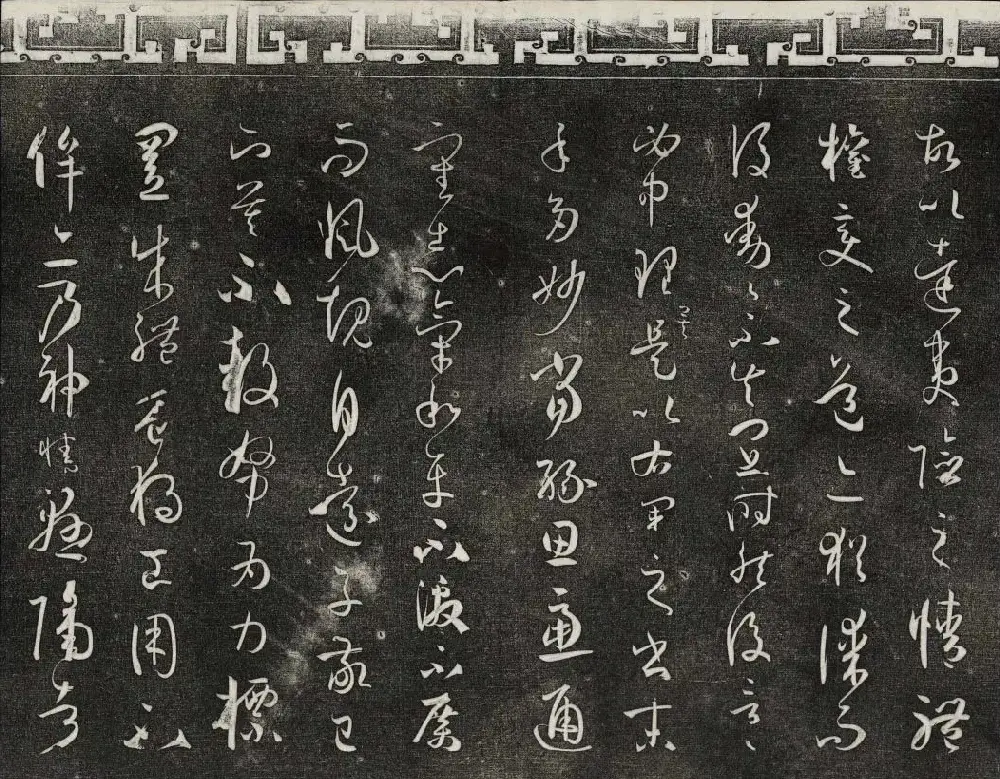 故以達夷險之情體
權變之道亦猶謀而
後動々不失宜時然後言々
必中理矣是以右軍之書末
年多妙當緣思慮通
審志氣和平不激不厲
而風規自遠子敬已
下莫不鼓努為力標
置成體豈獨工用不
侔亦乃神情懸隔者